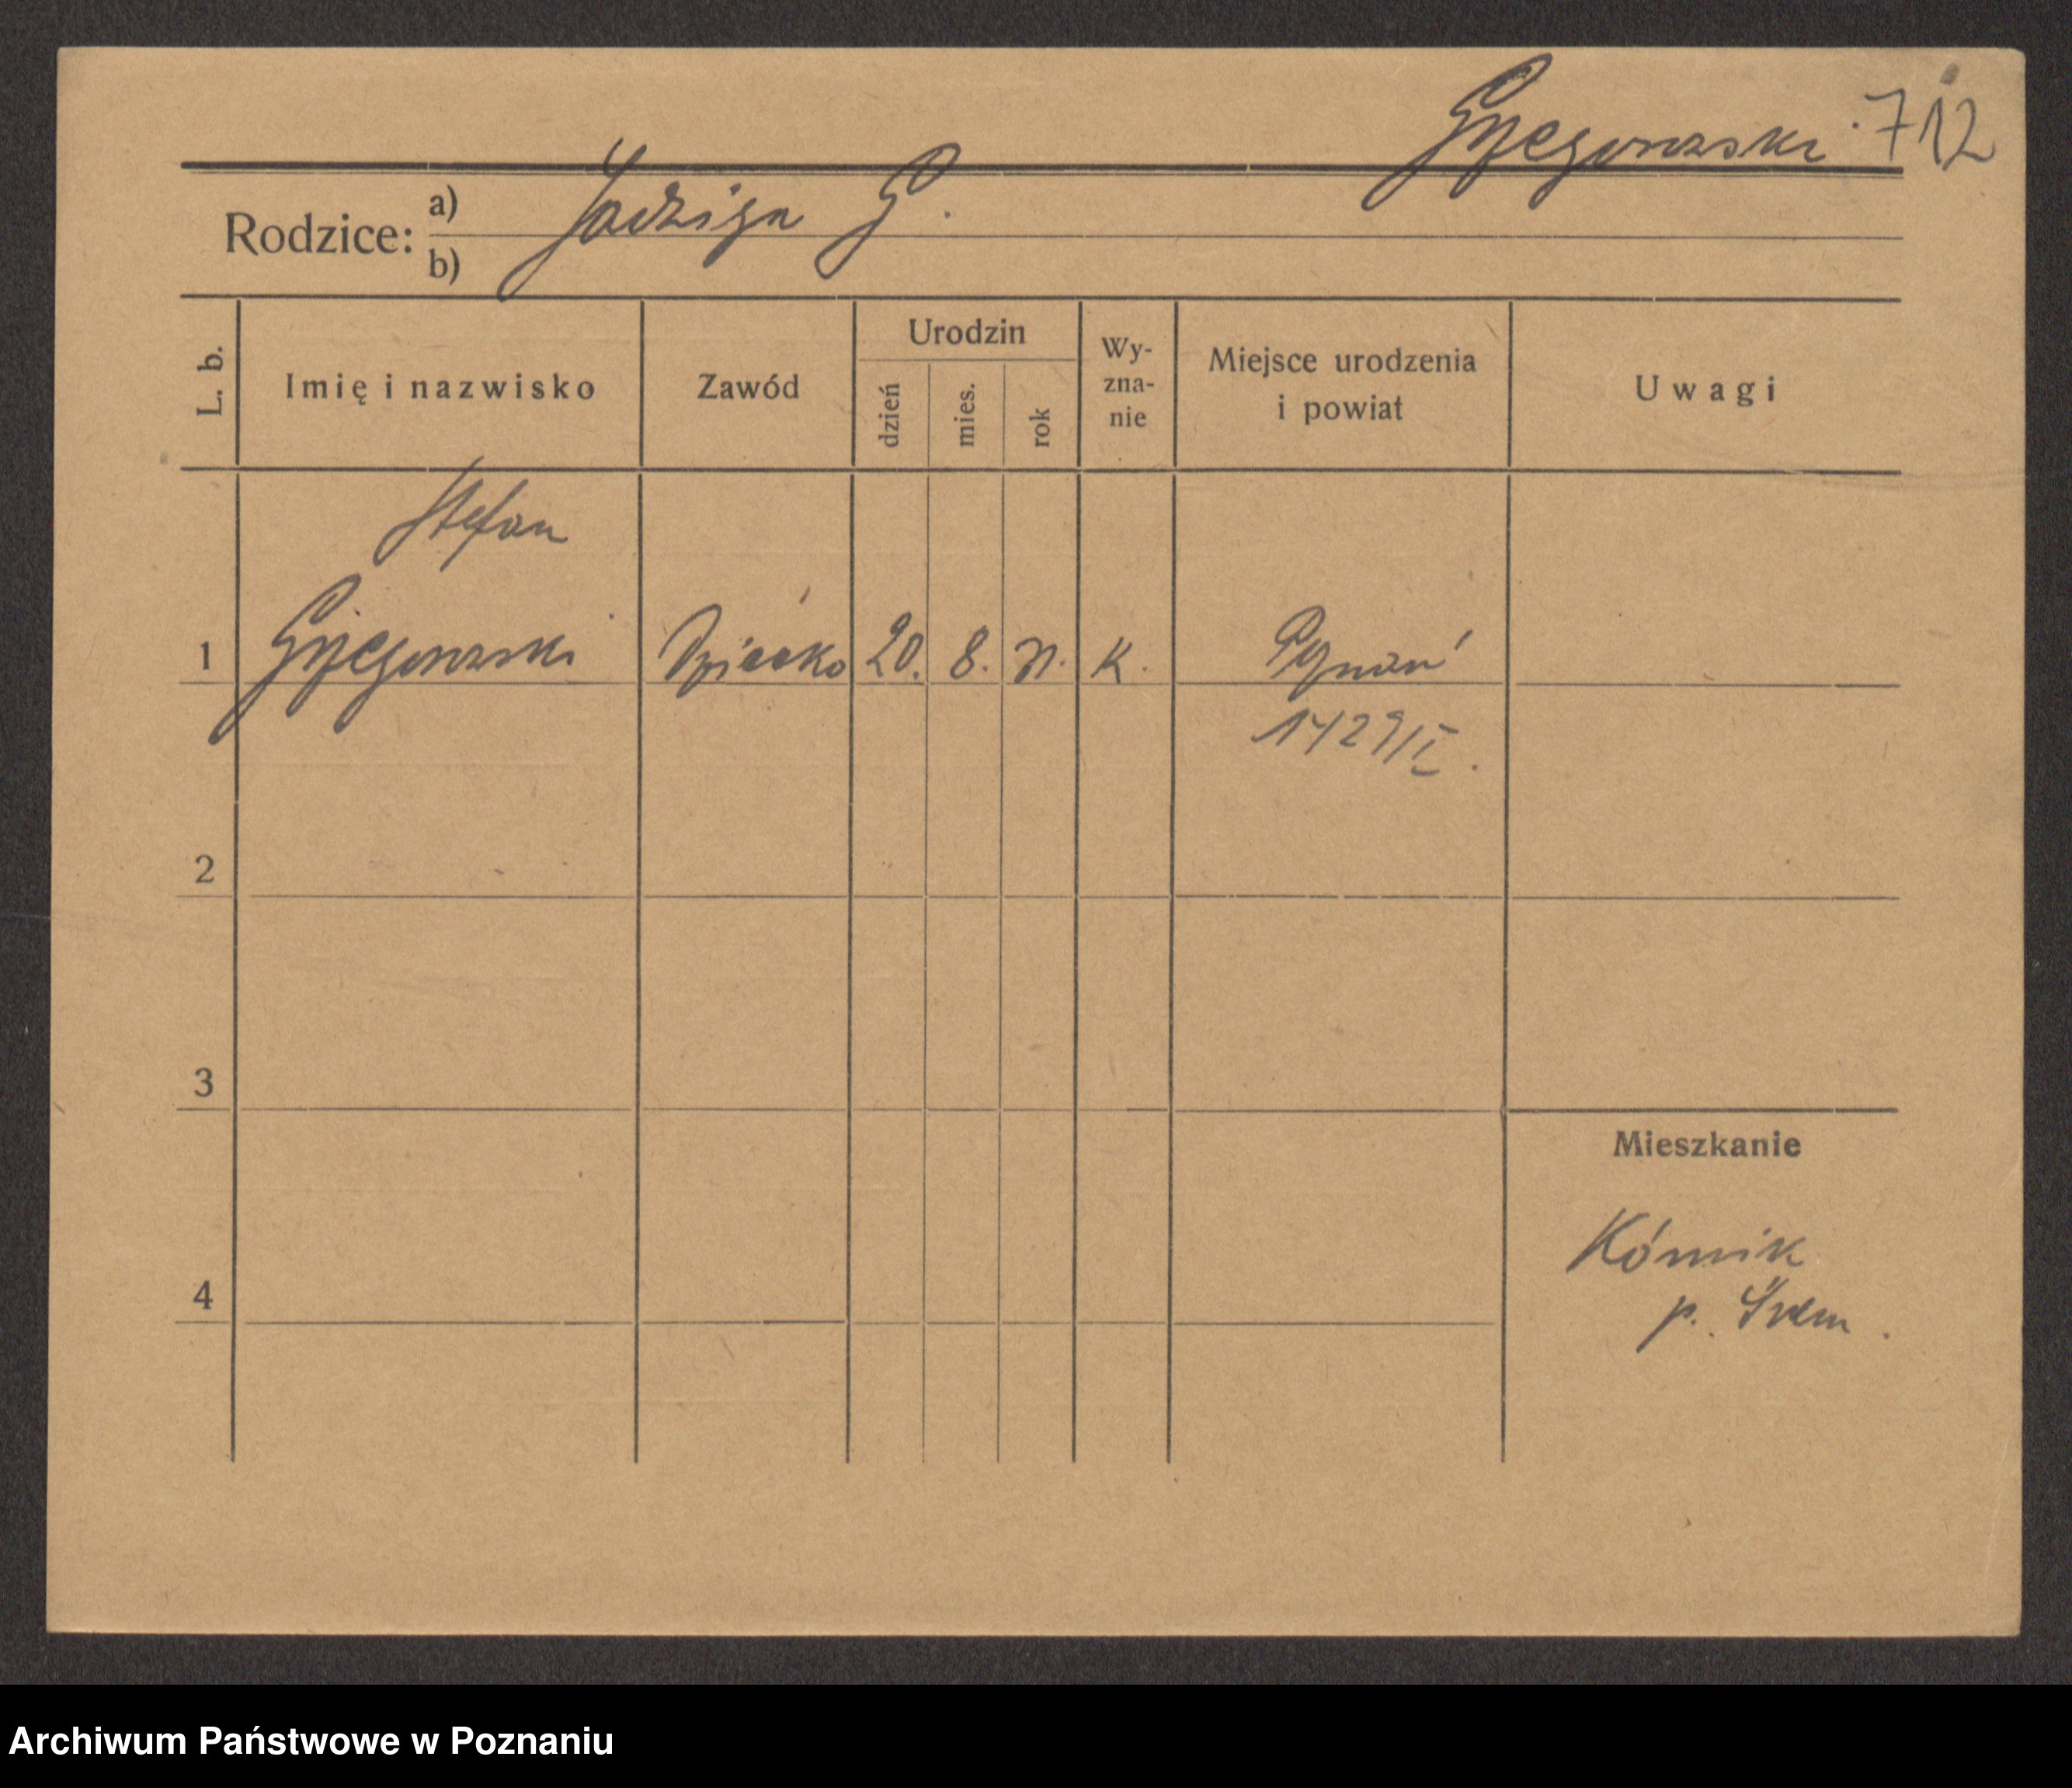 Grzegorzewski 712
Rodzice: a) Jadwiga G.
b)
L. b. Imię i nazwisko Zawód Urodzin dzień mies. rok Wy-zna-nie Miejsce urodzenia i powiat Uwagi
Stefan
1 Grzegorzewski Dziecko 20. 8. K. Poznań
1429/I.
2
3
Mieszkanie
Kórnik
4
p. Śrem.
Archiwum Państwowe w Poznaniu